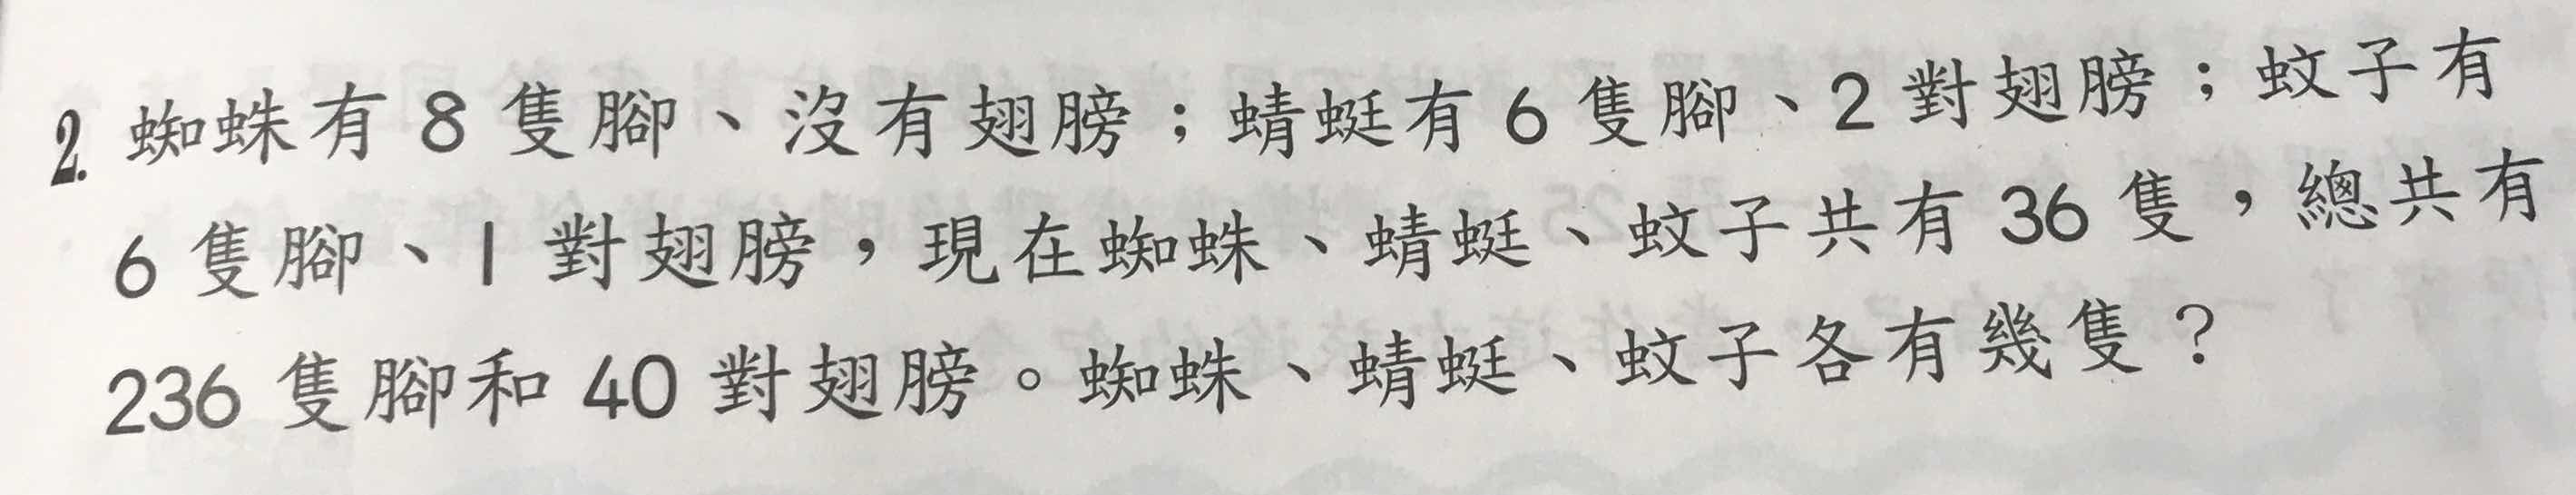 2. 蜘蛛有 8 隻腳、沒有翅膀；蜻蜓有 6 隻腳、2 對翅膀；蚊子有
6 隻腳、1 對翅膀，現在蜘蛛、蜻蜓、蚊子共有 36 隻，總共有
236 隻腳和 40 對翅膀。蜘蛛、蜻蜓、蚊子各有幾隻？